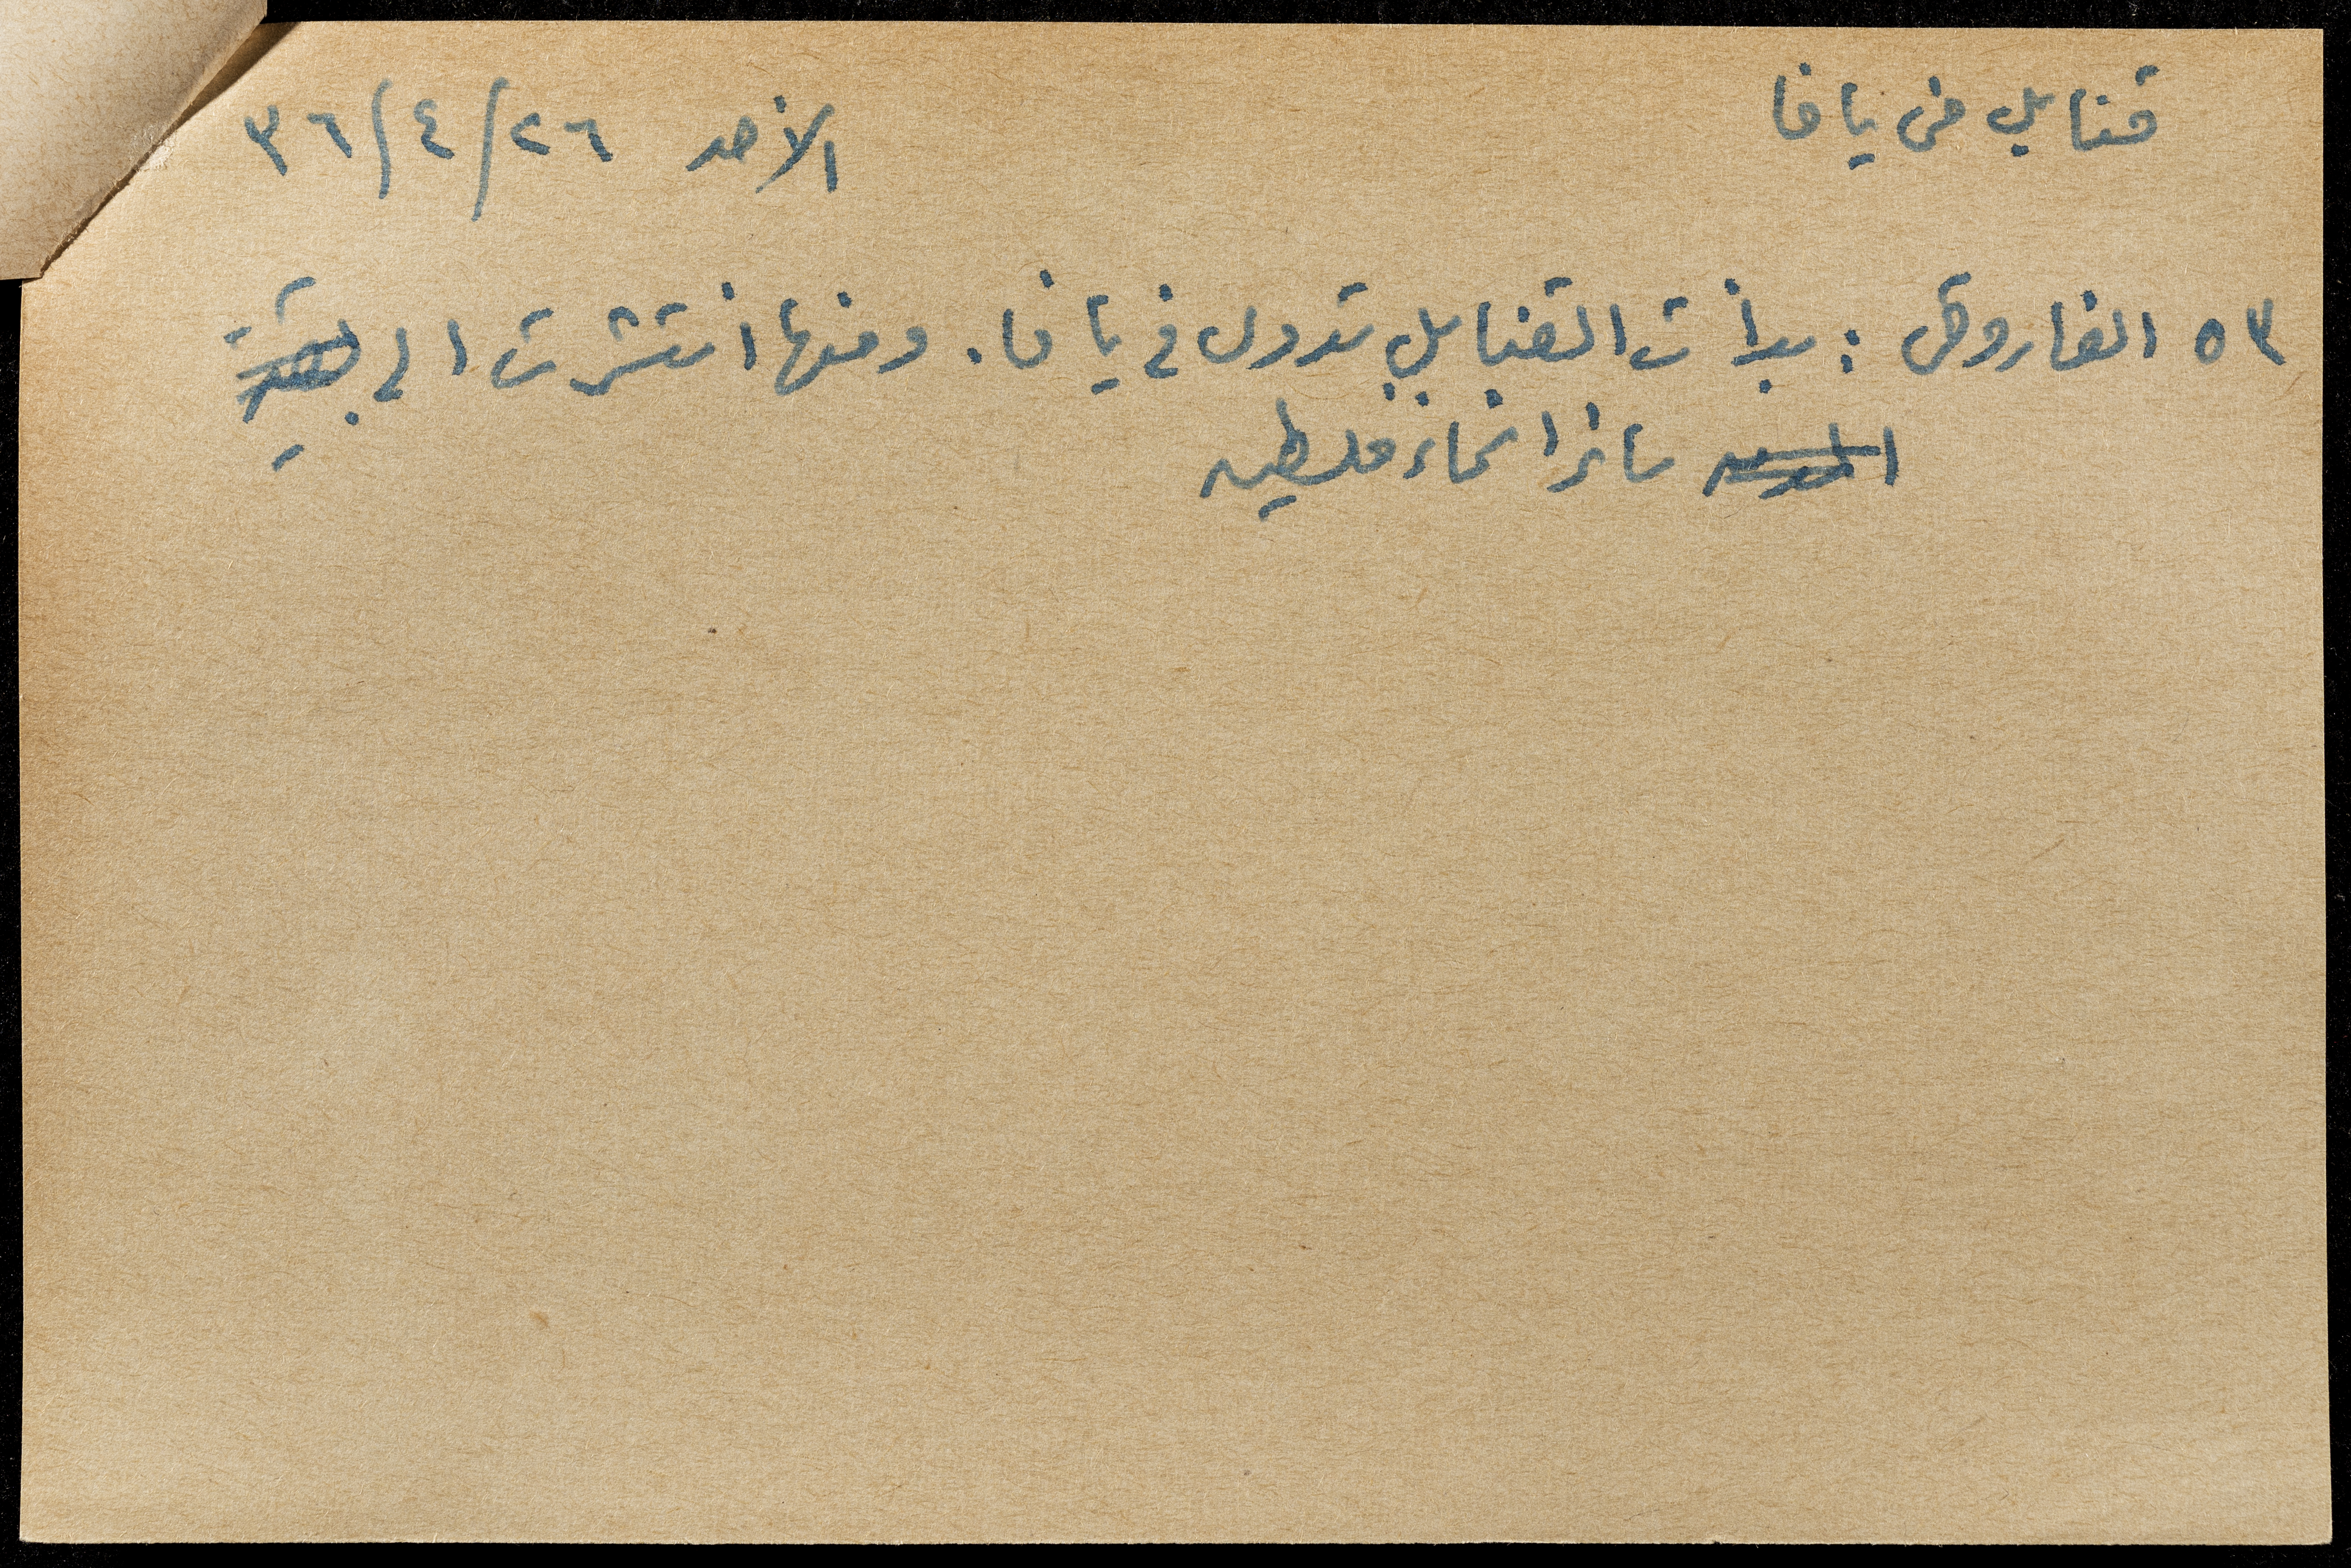 قنابل في يافا
الأحد ٢٦/٤/٣٦
٥٣ الفاروقي : بدأت القنابل تدوي في يافا. ومنها انتشرت الى بقية
المدن سائر انحاء فلسطين